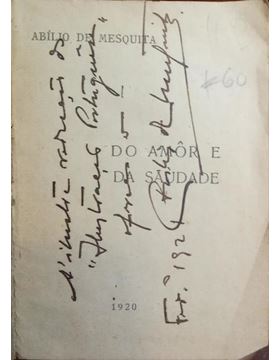 ABÍLIO DE MESQUITA
DO AMÔR E
DA SAUDADE
1920
A' ilustre redacção da
"Ilustração Portuguesa"
oferece o
Abílio de Mesquita
60